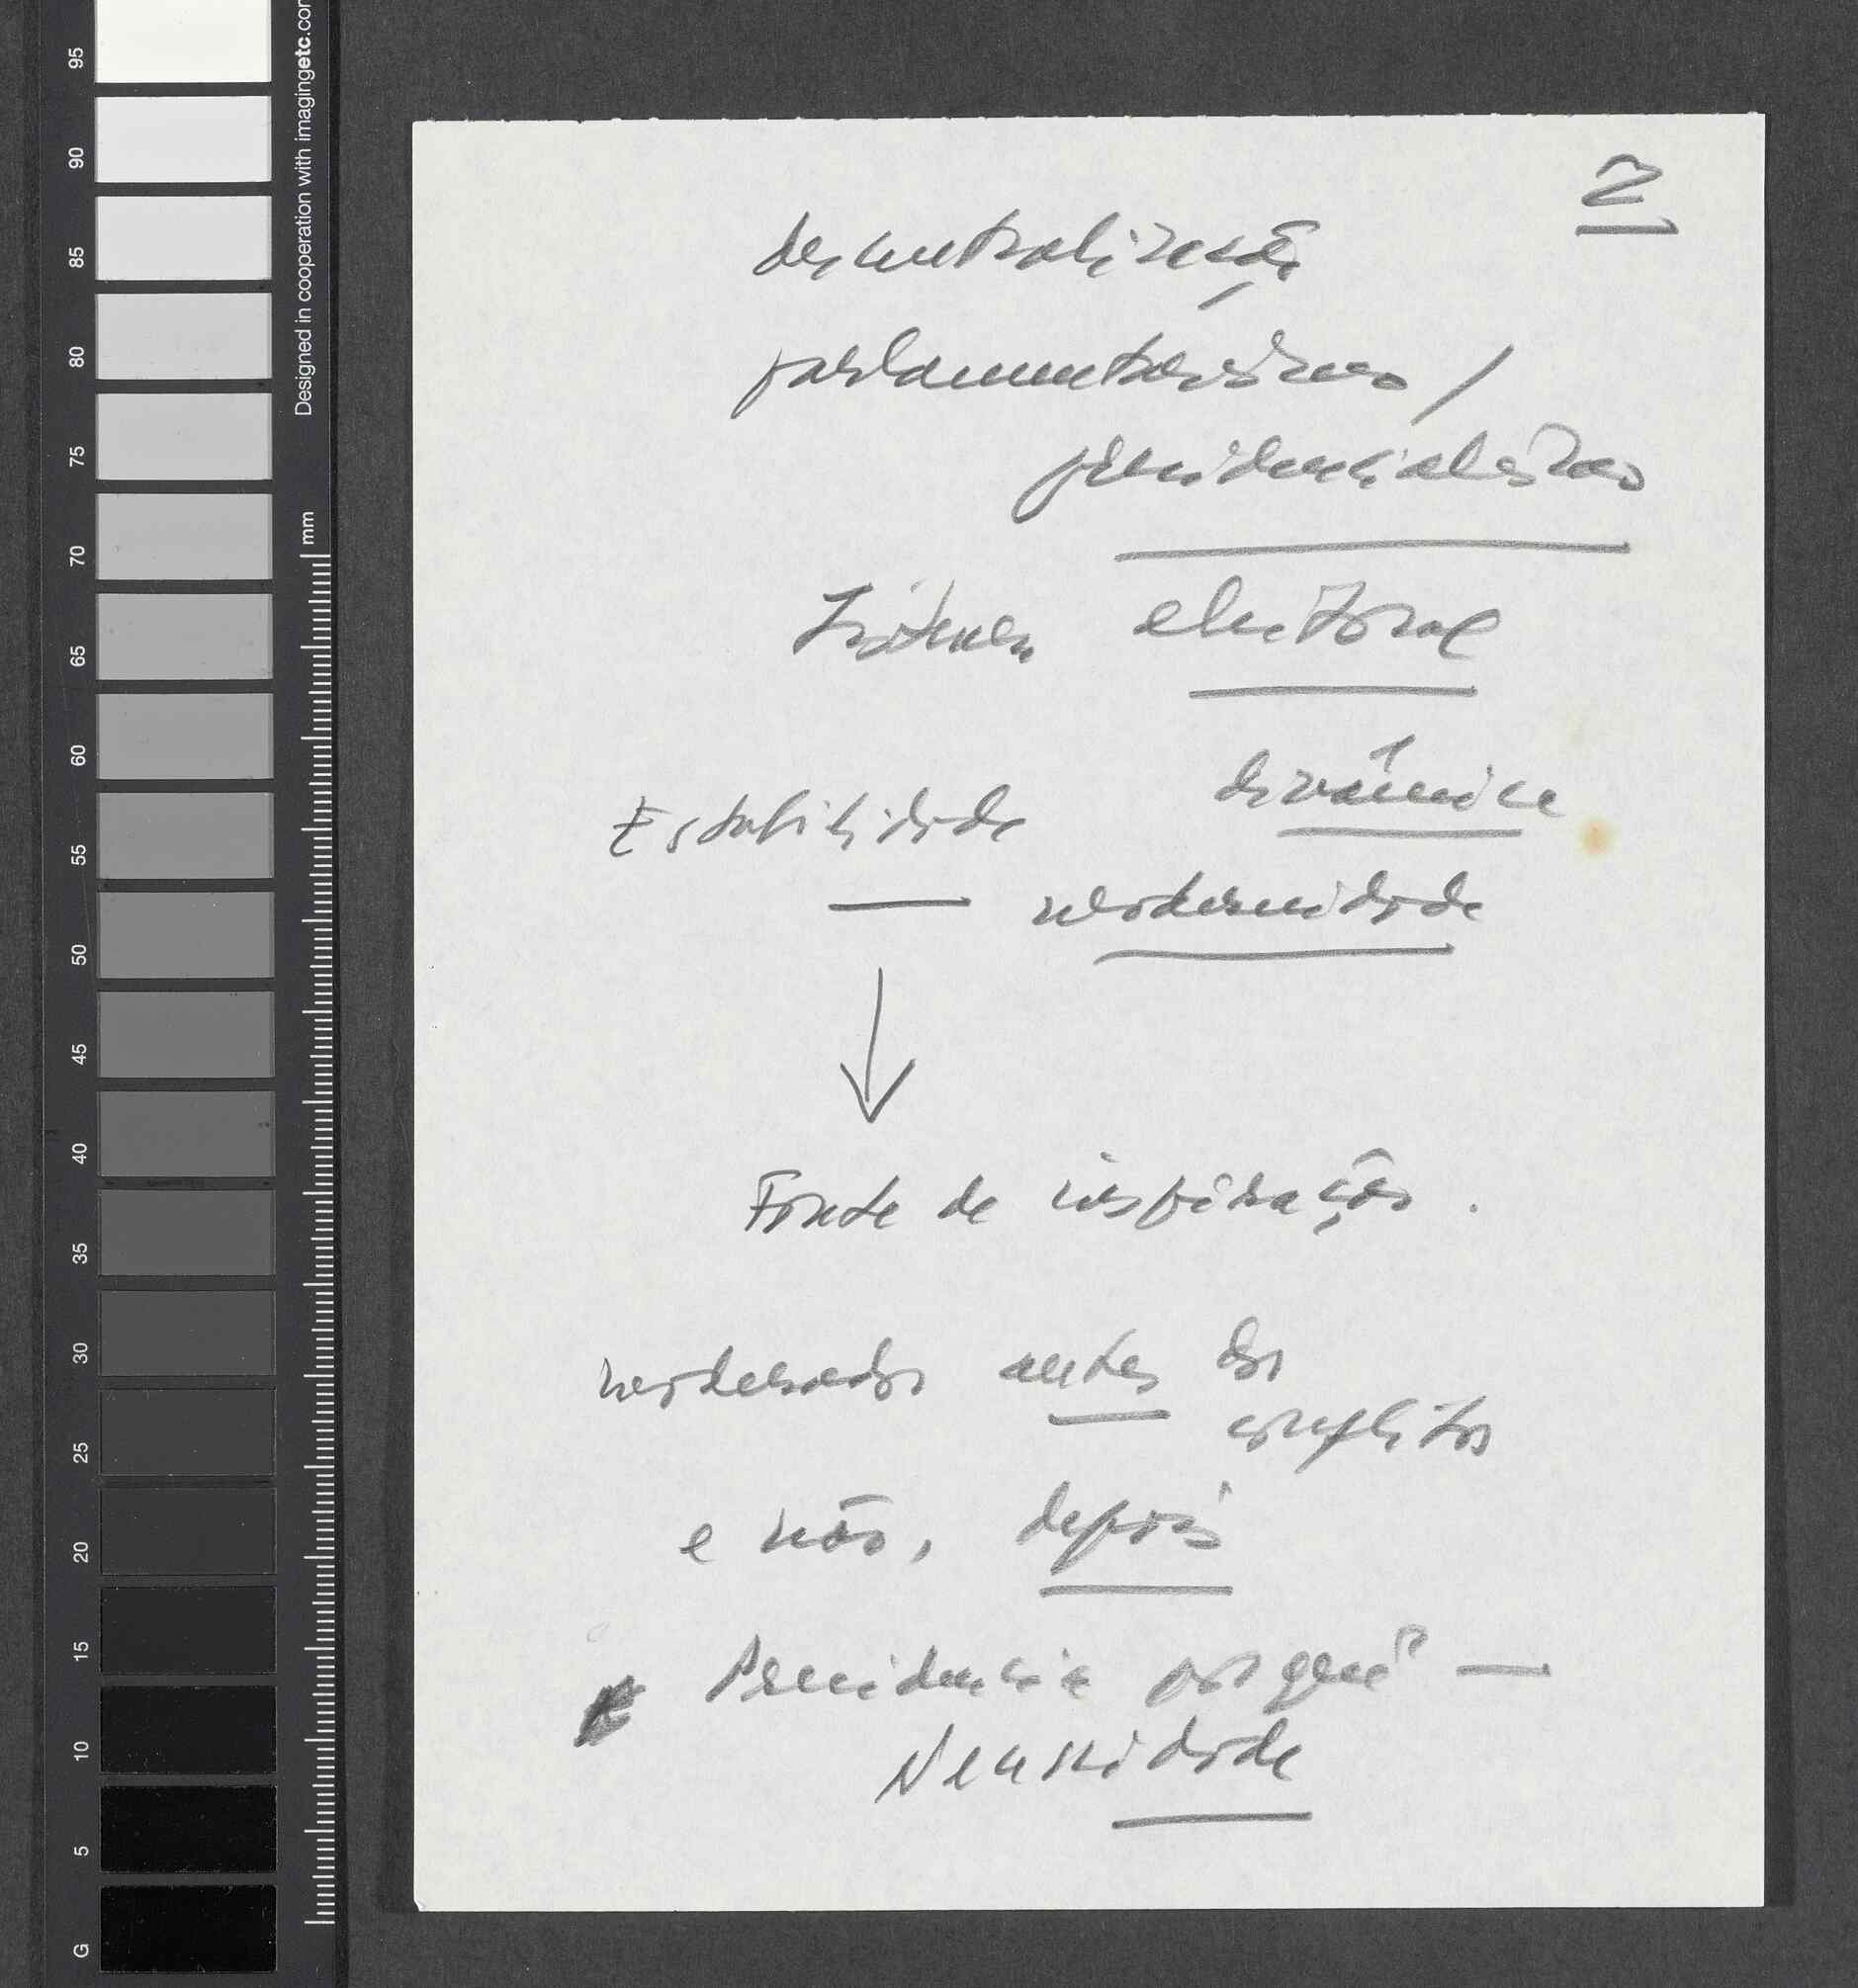 2
descentralização
parlamentarismo /
presidencialismo
Sistema eleitoral
dinâmica
Estabilidade
— modernidade
↓
Fonte de inspiração.
moderador antes dos
conflitos
e não, depois
Presidência porquê? —
Necessidade
95
90
85
80
75
70
65
60
55
50
45
40
35
30
25
20
15
10
5
G
mm
Designed in cooperation with imagingetc.com